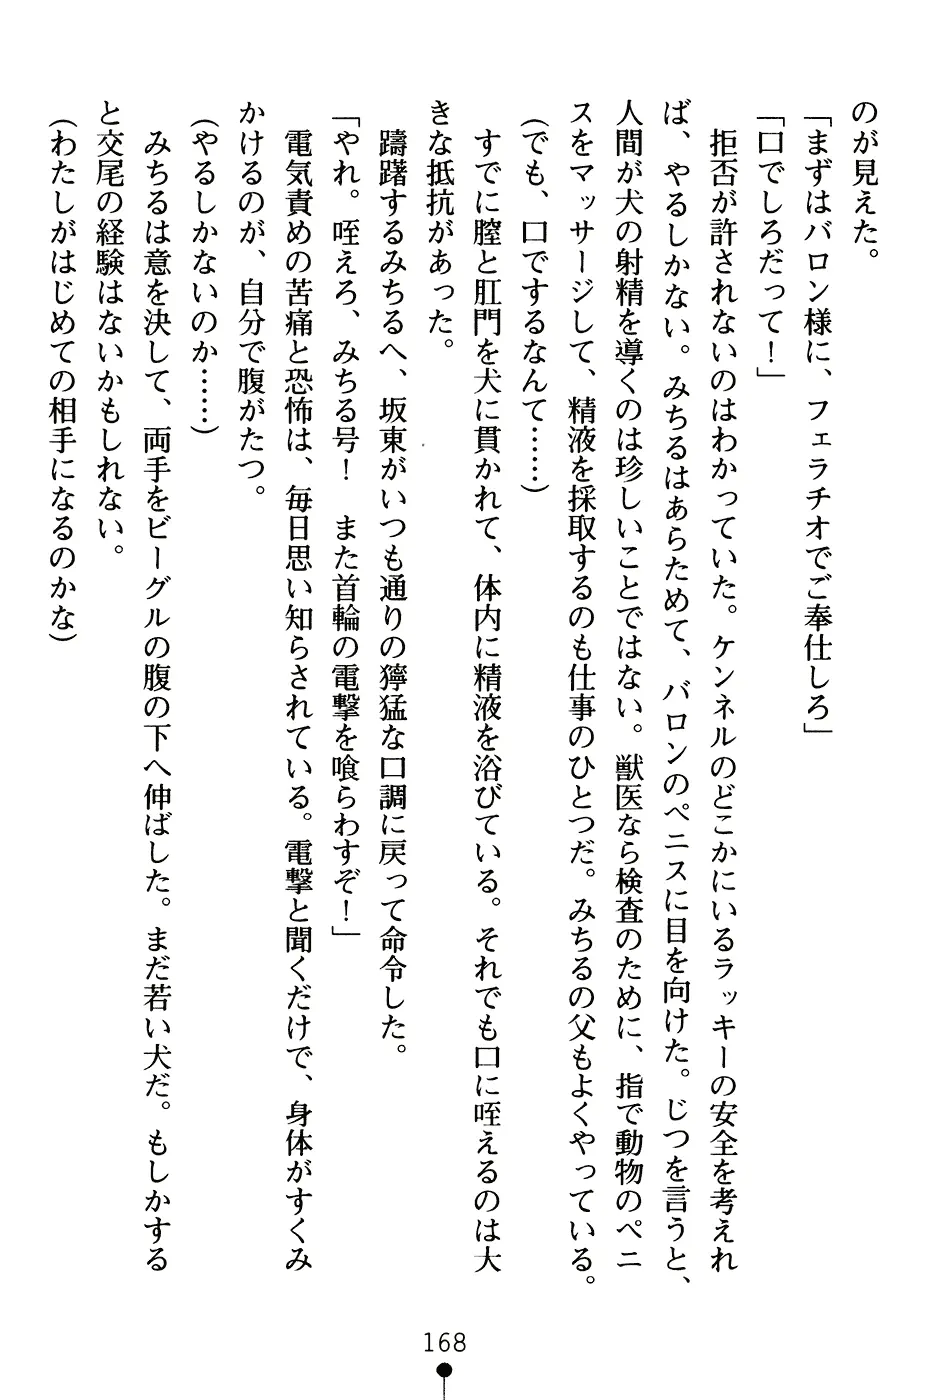 のが見えた。
「まずはバロン様に、フェラチオでご奉仕しろ」
「口でしろだって！」
拒否が許されないのはわかっていた。ケンネルのどこかにいるラッキーの安全を考えれ
ば、やるしかない。みちるはあらためて、バロンのペニスに目を向けた。じつを言うと、
人間が犬の射精を導くのは珍しいことではない。獣医なら検査のために、指で動物のペニ
スをマッサージして、精液を採取するのも仕事のひとつだ。みちるの父もよくやっている。
（でも、口でするなんて……）
すでに膣と肛門を犬に貫かれて、体内に精液を浴びている。それでも口に咥えるのは大
きな抵抗があった。
躊躇するみちるへ、坂東がいつも通りの獰猛な口調に戻って命令した。
「やれ。咥えろ、みちる号！　また首輪の電撃を喰らわすぞ！」
電気責めの苦痛と恐怖は、毎日思い知らされている。電撃と聞くだけで、身体がすくみ
かけるのが、自分で腹がたつ。
（やるしかないのか……）
みちるは意を決して、両手をビーグルの腹の下へ伸ばした。まだ若い犬だ。もしかする
と交尾の経験はないかもしれない。
（わたしがはじめての相手になるのかな）
168